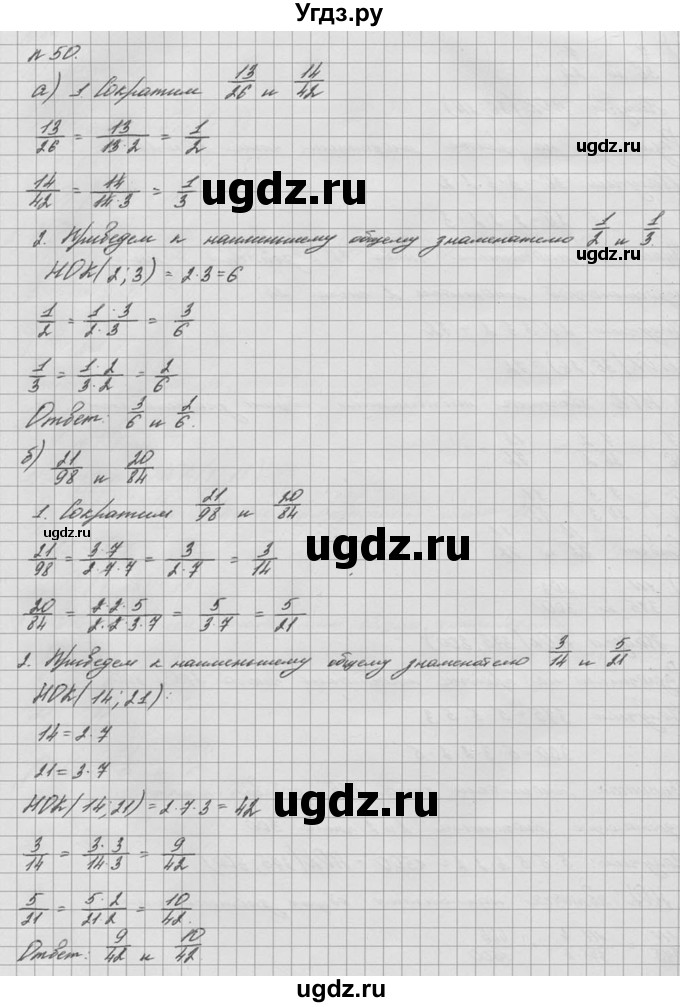 Угдз.ру
№ 50.
а) 1. Сократим 13/26 и 14/42
ugdz.ru
13/26 = 13/13·2 = 1/2
14/42 = 14/14·3 = 1/3
ugdz.ru
2. Приведем к наименьшему общему знаменателю 1/2 и 1/3
ugdz.ru
НОК(2; 3) = 2·3 = 6
1/2 = 1·3/2·3 = 3/6
1/3 = 1·2/3·2 = 2/6
Ответ: 3/6 и 2/6.
б) 21/98 и 20/84
1. Сократим 21/98 и 20/84
ugdz.ru
ugdz.ru
21/98 = 3·7/2·7·7 = 3/2·7 = 3/14
20/84 = 2·2·5/2·2·3·7 = 5/3·7 = 5/21
ugdz.ru
2. Приведем к наименьшему общему знаменателю 3/14 и 5/21
НОК(14; 21):
14 = 2·7
21 = 3·7
ugdz.ru
НОК(14; 21) = 2·7·3 = 42
3/14 = 3·3/14·3 = 9/42
5/21 = 5·2/21·2 = 10/42.
Ответ: 9/42 и 10/42.
ugdz.ru
ugdz.ru